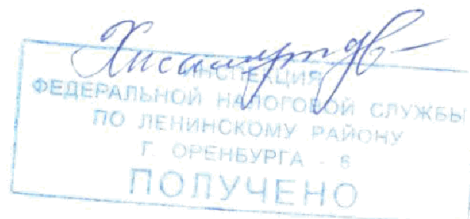 ИНСПЕКЦИЯ
ФЕДЕРАЛЬНОЙ НАЛОГОВОЙ СЛУЖБЫ
ПО ЛЕНИНСКОМУ РАЙОНУ
Г. ОРЕНБУРГА - 6
ПОЛУЧЕНО